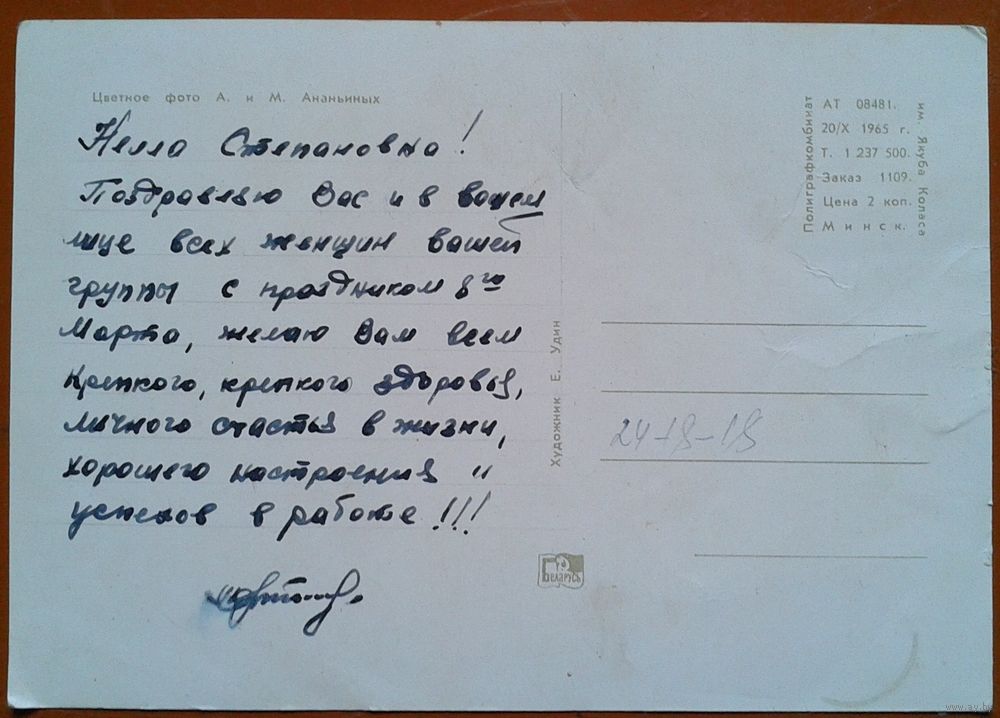 Цветное фото А. и М. Ананьиных
Нелла Степановна!
Поздравляю Вас и в вашем
лице всех женщин вашей
группы с праздником 8го
Марта, желаю Вам всем
крепкого, крепкого здоровья,
личного счастья в жизни,
хорошего настроения и
успехов в работе!!!
Художник Е. Удин
БЕЛАРУСЬ
Полиграфкомбинат
им. Якуба Коласа
АТ 08481.
20/X 1965 г.
Т. 1 237 500.
Заказ 1109.
Цена 2 коп.
Минск.
24-18-18
www.ay.by